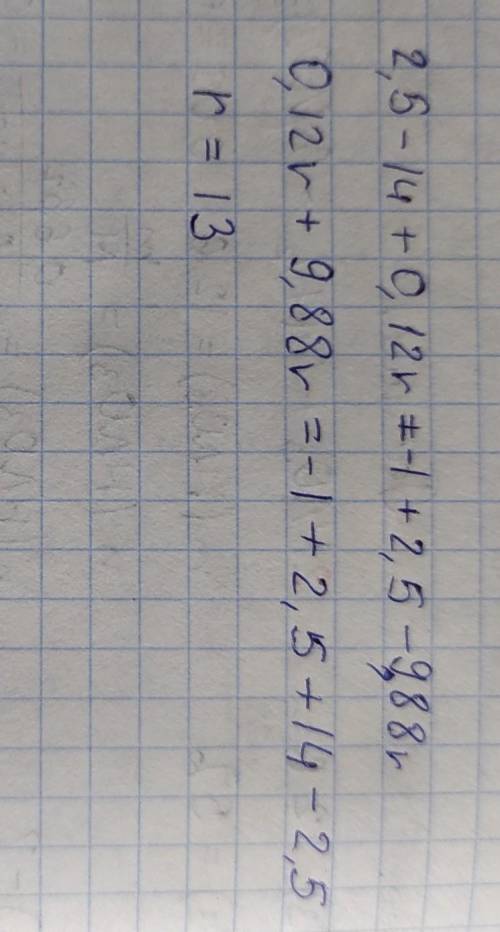 2,5 - 14 + 0,12r = -1 + 2,5 - 9,88r
0,12r + 9,88r = -1 + 2,5 + 14 - 2,5
r = 13